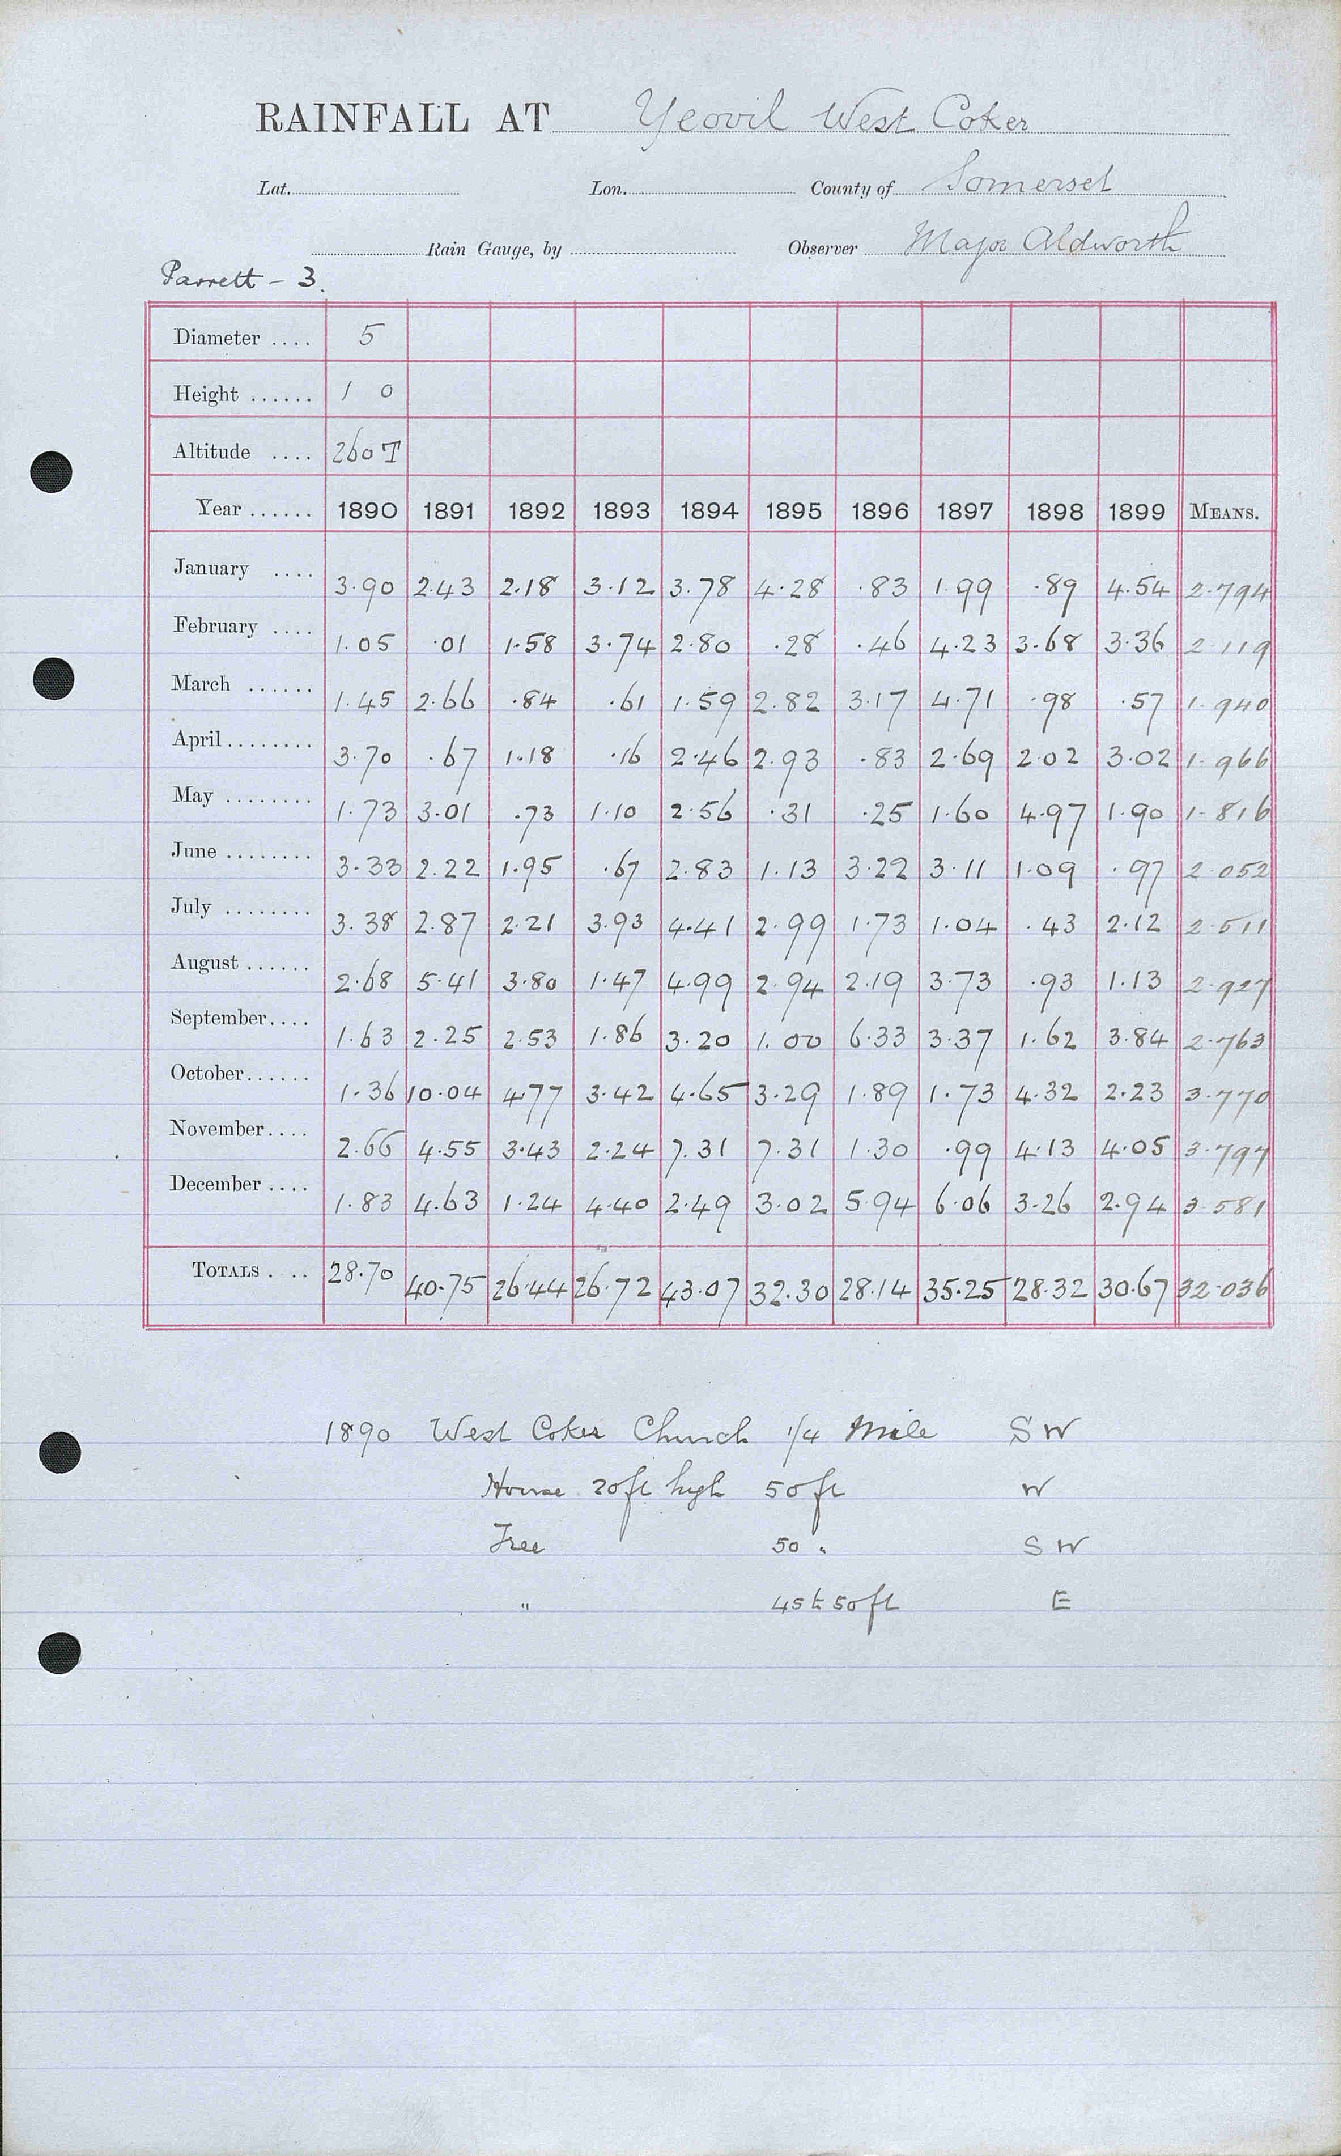 RAINFALL AT Yeovil West Coker
Lat. Lon. County of Somerset
Rain Gauge, by Observer Major Aldworth
Parrett - 3.
Diameter .... 5
Height ...... 1 0
Altitude .... 260 T
Year ...... 1890 1891 1892 1893 1894 1895 1896 1897 1898 1899 MEANS.
January .... 3.90 2.43 2.18 3.12 3.78 4.28 .83 1.99 .89 4.54 2.794
February .... 1.05 .01 1.58 3.74 2.80 .28 .46 4.23 3.68 3.36 2.119
March ...... 1.45 2.66 .84 .61 1.59 2.82 3.17 4.71 .98 .57 1.940
April ........ 3.70 .67 1.18 .16 2.46 2.93 .83 2.69 2.02 3.02 1.966
May ........ 1.73 3.01 .73 1.10 2.56 .31 .25 1.60 4.97 1.90 1.816
June ........ 3.33 2.22 1.95 .67 2.83 1.13 3.22 3.11 1.09 .97 2.052
July ........ 3.38 2.87 2.21 3.93 4.41 2.99 1.73 1.04 .43 2.12 2.511
August ...... 2.68 5.41 3.80 1.47 4.99 2.94 2.19 3.73 .93 1.13 2.927
September.... 1.63 2.25 2.53 1.86 3.20 1.00 6.33 3.37 1.62 3.84 2.763
October...... 1.36 10.04 4.77 3.42 4.65 3.29 1.89 1.73 4.32 2.23 3.770
November.... 2.66 4.55 3.43 2.24 7.31 7.31 1.30 .99 4.13 4.05 3.797
December .... 1.83 4.63 1.24 4.40 2.49 3.02 5.94 6.06 3.26 2.94 3.581
TOTALS . .. 28.70 40.75 26.44 26.72 43.07 32.30 28.14 35.25 28.32 30.67 32.036
1890 West Coker Church 1/4 Mile S W
House 20ft high 50ft W
Tree 50 " S W
" 45 to 50ft E